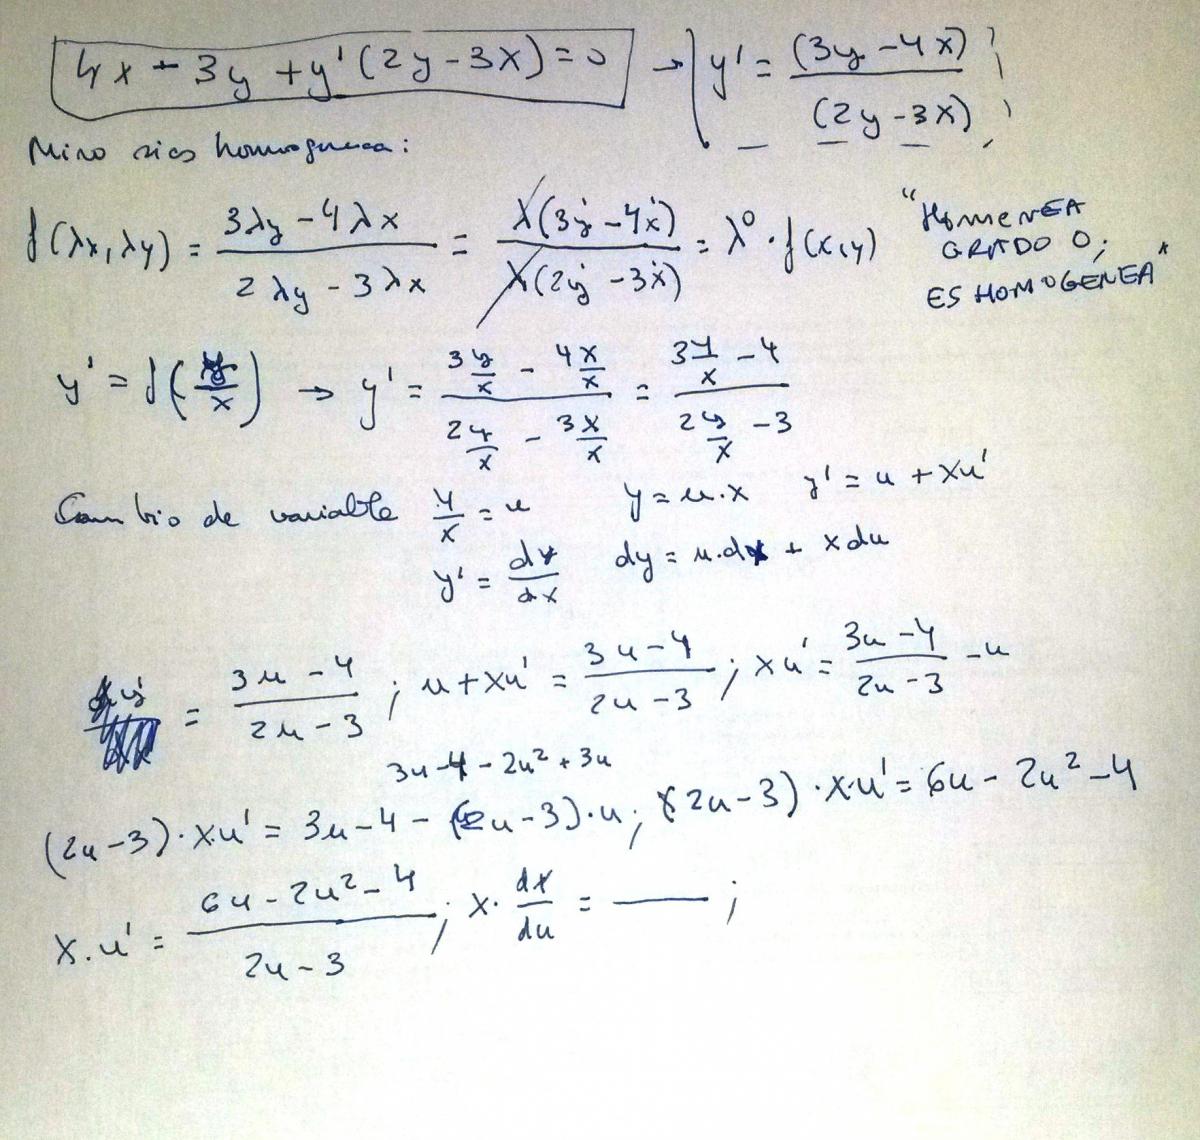 4x - 3y + y'(2y - 3x) = 0 → y' = (3y - 4x) / (2y - 3x)
Miro si es homogenea:
f(λx, λy) = (3λy - 4λx) / (2λy - 3λx) = λ(3y - 4x) / λ(2y - 3x) = λ⁰ · f(x,y) "HOMENEA GRADO 0; ES HOMOGÉNEA"
y' = f(y/x) → y' = (3 y/x - 4x/x) / (2 y/x - 3x/x) = (3 y/x - 4) / (2 y/x - 3)
Cambio de variable y/x = u y = u·x y' = u + xu'
y' = dy/dx dy = u·dx + xdu
y' = (3u - 4) / (2u - 3) ; u + xu' = (3u - 4) / (2u - 3) ; xu' = (3u - 4) / (2u - 3) - u
3u - 4 - 2u² + 3u
(2u - 3) · xu' = 3u - 4 - (2u - 3)·u ; (2u - 3) · x·u' = 6u - 2u² - 4
x·u' = (6u - 2u² - 4) / (2u - 3) ; x · dx/du = — ;